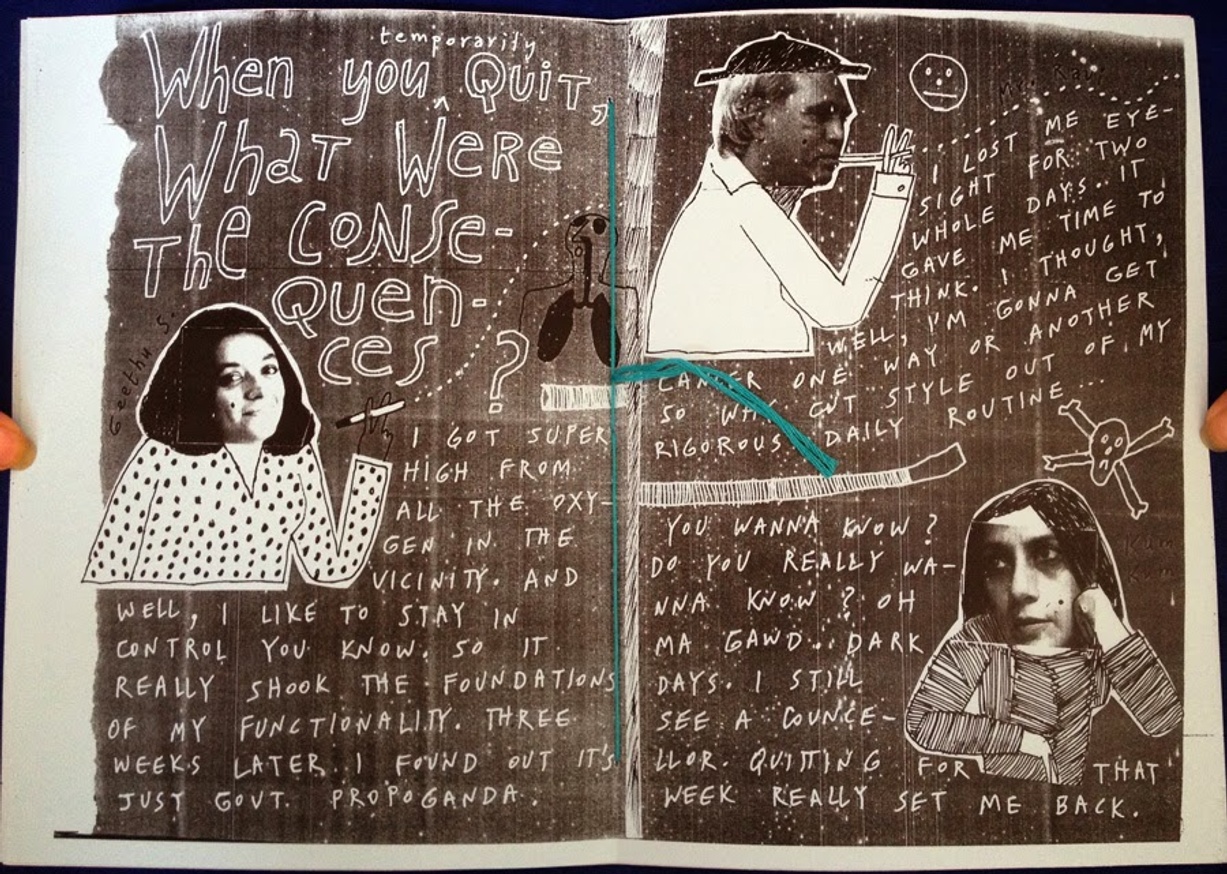 temporarily
When you ^ Quit,
What Were
The Conse-
Quen-
ces ?
Geethu S.
I GOT SUPER
HIGH FROM
ALL THE OXY-
GEN IN THE
VICINITY. AND
WELL, I LIKE TO STAY IN
CONTROL YOU KNOW. SO IT
REALLY SHOOK THE FOUNDATIONS
OF MY FUNCTIONALITY. THREE
WEEKS LATER I FOUND OUT IT'S
JUST GOVT. PROPOGANDA.
Mr. Ravi
I LOST ME EYE-
SIGHT FOR TWO
WHOLE DAYS.. IT
GAVE ME TIME TO
THINK. I THOUGHT,
WELL, I'M GONNA GET
CANCER ONE WAY OR ANOTHER
SO WHY CUT STYLE OUT OF MY
RIGOROUS DAILY ROUTINE...
YOU WANNA KNOW ?
DO YOU REALLY WA-
NNA KNOW ? OH
MA GAWD.. DARK
DAYS. I STILL
SEE A COUNCE-
LLOR. QUITTING FOR THAT
WEEK REALLY SET ME BACK.
Kum
Kum